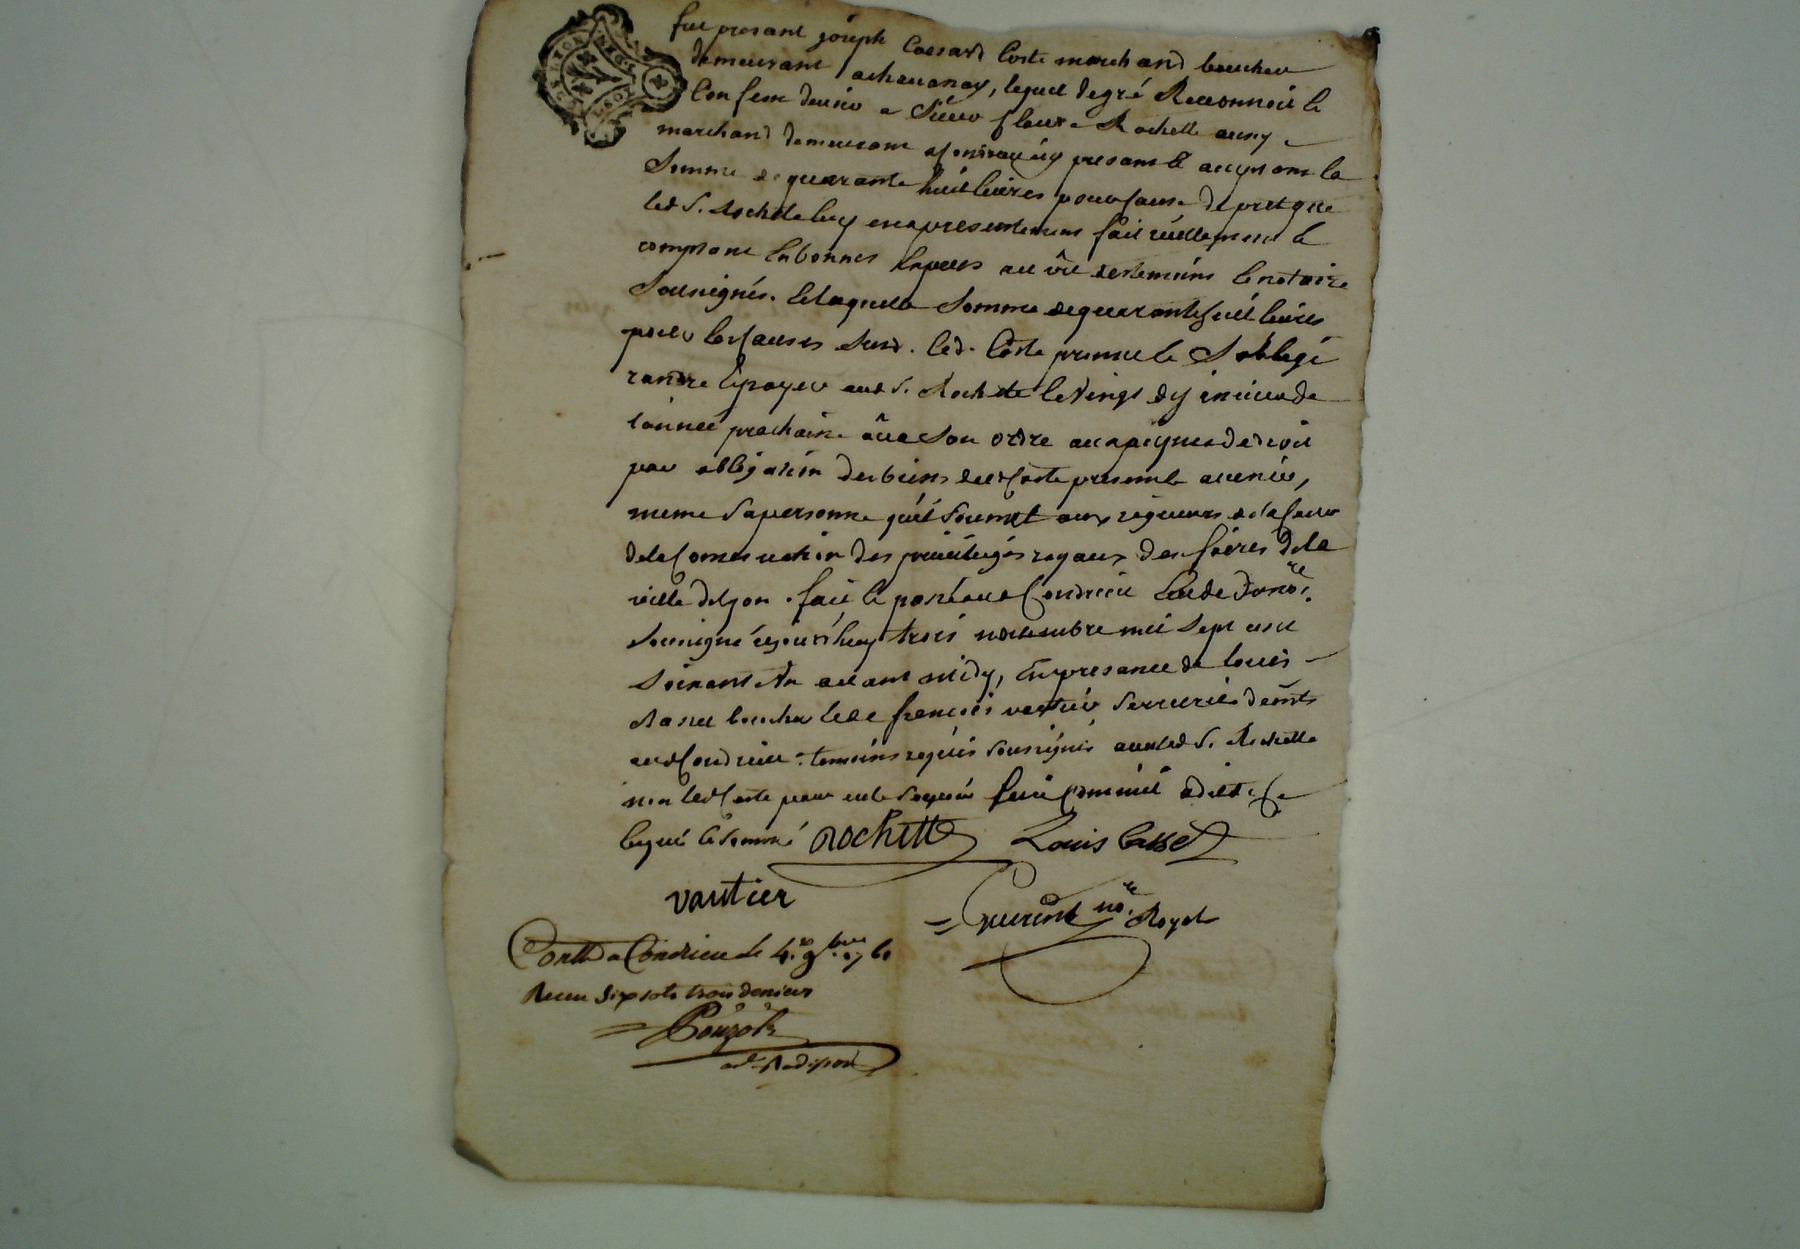 fut presant joseph Caesard Coste marchand boucher
demeurant a chavanay, lequel de gré Reconnoit &
Confesse devoir a Sieur fleury Rochette aussy
marchand demeurant presant & acceptant la
Somme de quarante huit livres pour cause de prest que
led S. Rochette luy en a presentement fait réellement &
comptant En bonnes Especes au vû des temoins & notaire
Soussignés. & laquelle Somme de quarante huit livres
pour les causes susd. led. Coste promet & S'oblige
randre & payer aud S. Rochette le Vingt de
l'année prochaine ou a son ordre a peyne de droit
par obligation des biens dud Coste presents & avenir,
meme Sa personne qu'il Soumet aux rigueurs de la Cour
de la Conservation des privileges royaux des foires de la
ville de lyon. fait & passé aud Condrieu Etude du no.re
Soussigné cejourd'huy trois novembre mil Sept cent
Soixante Un avant midy, En presance de louis
Casset boucher & de françois vautier Serrurier
aud Condrieu temoins requis soussignés avec led S. Rochette
non led Coste pour ne le Sçavoir faire comme il a dit de ce
Enquis & Sommé Rochette Louis Casset
vautier
no.re Royal
Con.llé a Condrieu le 4.e 9.bre 1761
Receu Six sols trois deniers